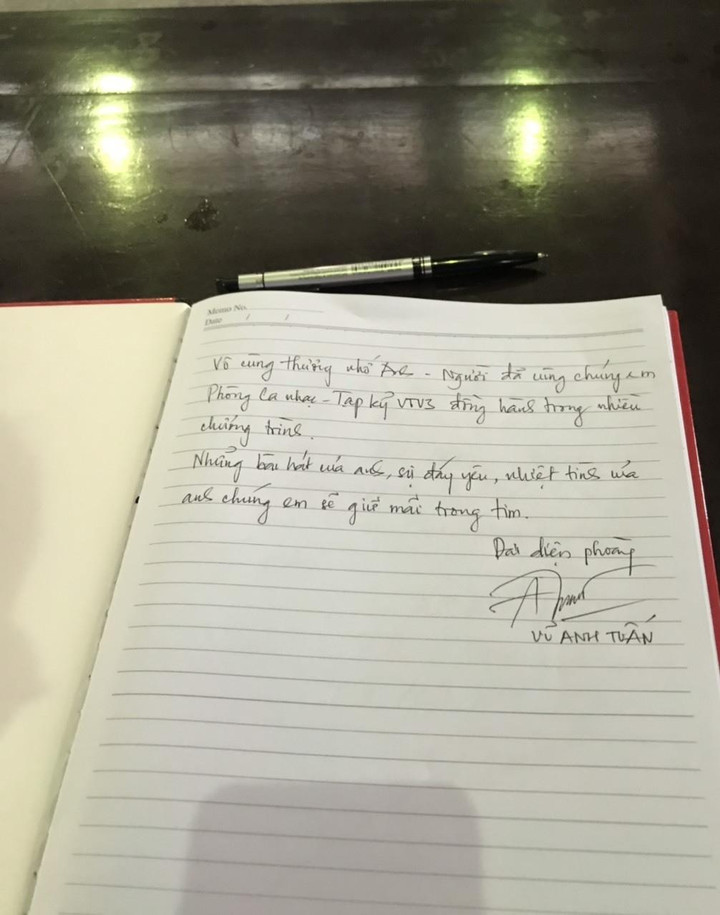 Memo No.
Date / /
Vô cùng thương nhớ Anh - Người đã cùng chúng em
Phòng Ca nhạc - Tạp kỹ VTV3 đồng hành trong nhiều
chương trình.
Những bài hát của anh, sự đáng yêu, nhiệt tình của
anh chúng em sẽ giữ mãi trong tim.
Đại diện phòng
VŨ ANH TUẤN